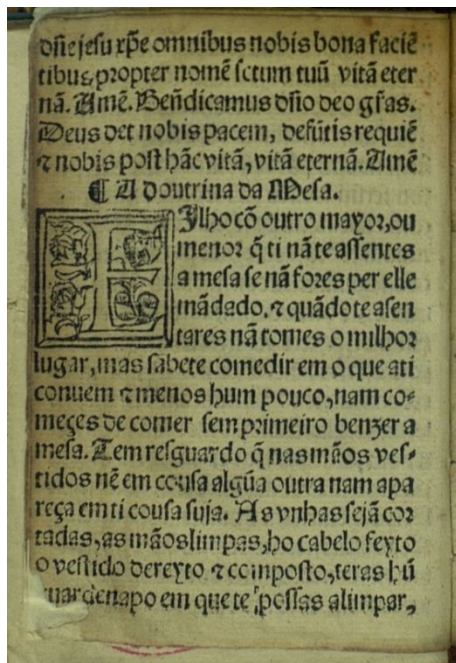 dñe jesu xp̃e omnibus nobis bona faciẽ
tibus, propter nomẽ sctum tuũ vitã eter
nã. Amẽ. Beñdicamus dño deo gr̃as.
Deus det nobis pacem, defũtis requiẽ
⁊ nobis post hãc vitã, vitã eternã. Amẽ
¶ A doutrina da Mesa.
FIlho cõ outro mayor, ou
menor q̃ ti nã te assentes
a mesa se nã fores per elle
mãdado. ⁊ quãdo te asen
tares nã tomes o milhor
lugar, mas sabete comedir em o que a ti
conuem ⁊ menos hum pouco, nam co-
meçes de comer sem primeiro benzer a
mesa. Tem resguardo q̃ nas mãos ves-
tidos nẽ em cousa algũa outra nam apa
reça em ti cousa suja. As vnhas sejã cor
tadas, as mãos limpas, ho cabelo feyto
o vestido dereyto ⁊ composto, teras hũ
guardenapo em que te possas alimpar,